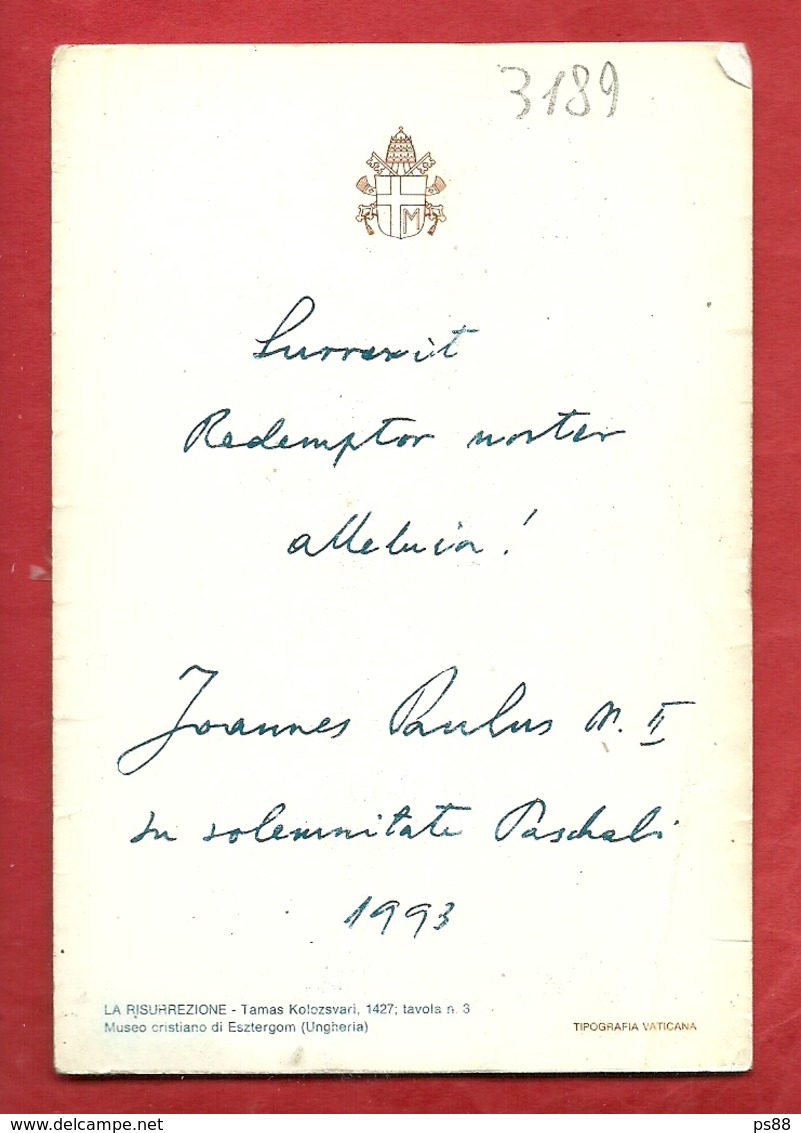 3189
M
Surrexit
Redemptor noster
alleluia!
Joannes Paulus PP. II
In solemnitate Paschali
1993
LA RISURREZIONE - Tamas Kolozsvari, 1427; tavola n. 3
Museo cristiano di Esztergom (Ungheria)
TIPOGRAFIA VATICANA
ps88